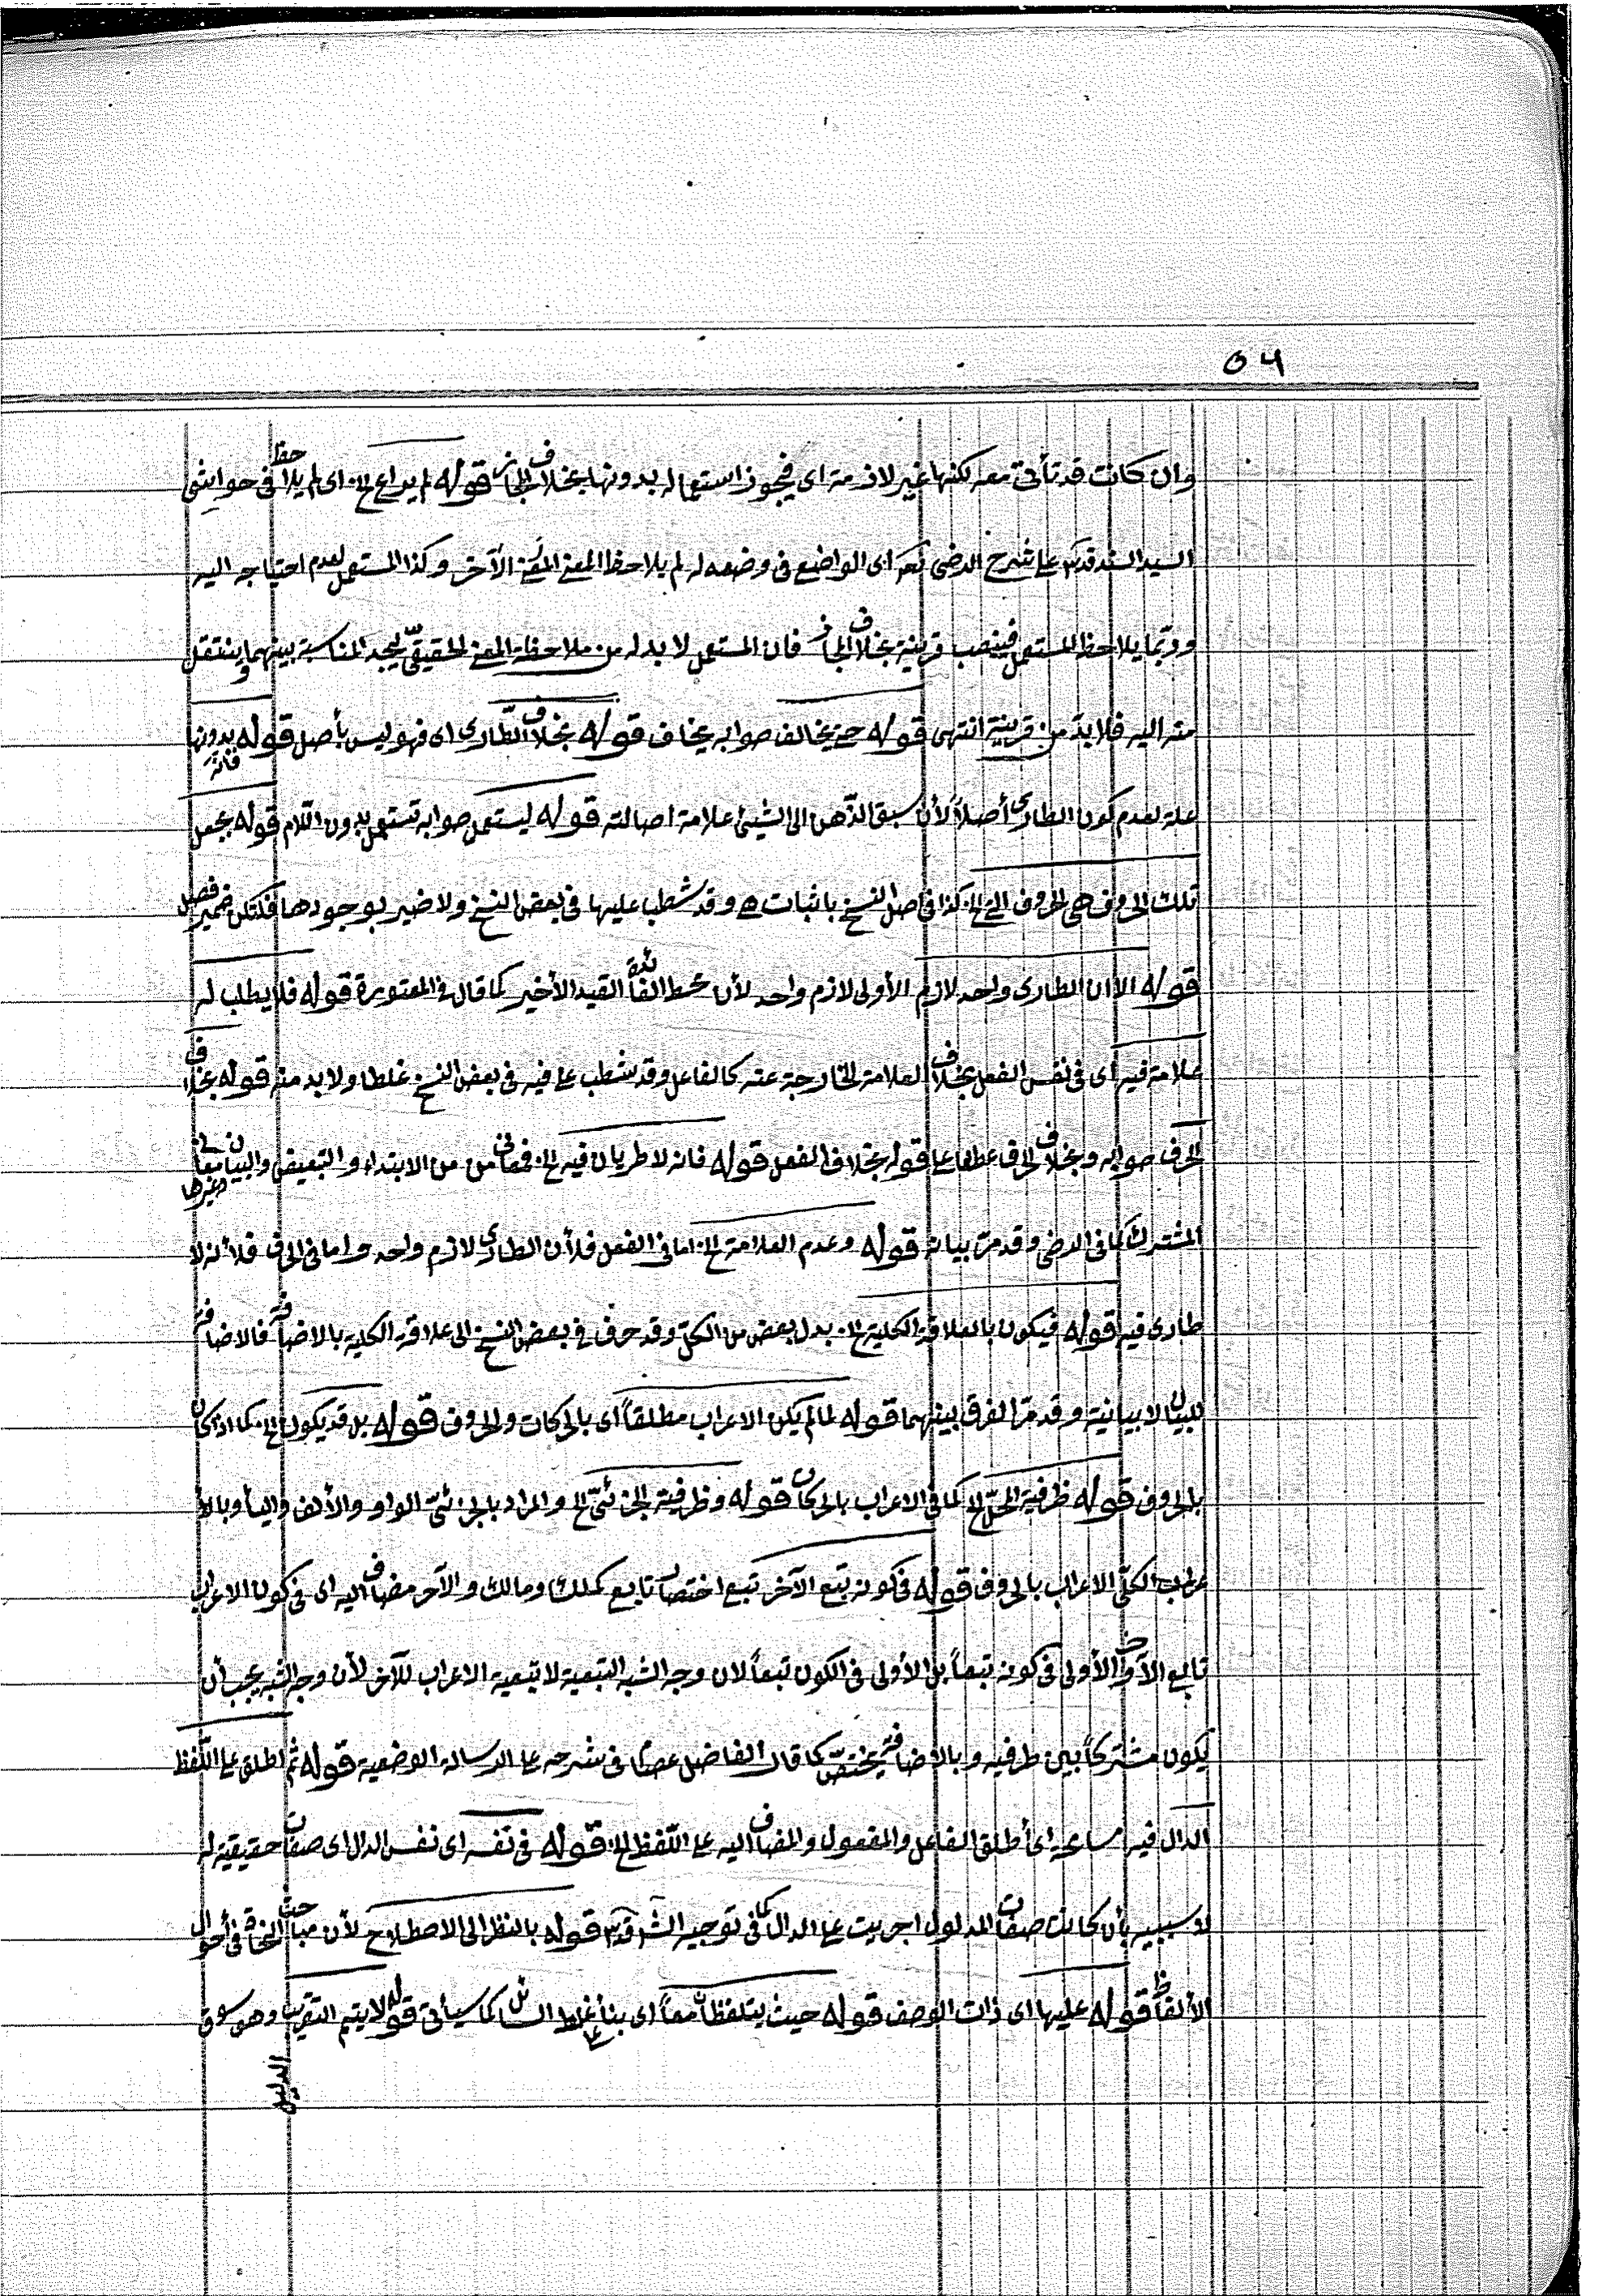 ٥٦
وان كانت قد تأتى معه لكنها غير لازمة اى فيجوز استعماله بدونها بخلاف المجاز قوله لم يراع الخ اى لم يلاحظ فى حواشى
السيد السند قدس على شرح الرضى نعم اى الواضع فى وضعه له لم يلاحظ المعنى الآخر وكذا المستعمل لعدم احتياجه اليه
وربّما يلاحظ المستعمل فينصب قرينة بخلاف المجاز فان المستعمل لا بد له من ملاحظة المعنى الحقيقىّ ليجد المناسبة بينهما وينتقل
منه اليه فلا بدّ من قرينة انتهى قوله حتى يخالف صوابه يخاف قوله بخلاف الطّارى اى فهو ليس بأصل قوله بدونها فانه
علة لعدم كون الطارى أصلاً لأن سبق الذّهن الى الشيئ علامة اصالته قوله ليستعمل صوابه تستعمل بدون اللام قوله بجعل
تلك الحروف هى الحروف التى الخ كذا فى اصل النسخ باثبات هى وقد شطب عليها فى بعض النسخ ولا ضير بوجودها فلتكن ضمير فصل
قوله الا ان الطارى واحد لازم الأولى لازم واحد لأن محط الفائدة القيد الأخير كما قال فى المعتورة قوله فلا يطلب له
علامة فيه اى فى نفس الفعل بخلاف العلامة الخارجة عنه كالفاعل وقد شطب على فيه فى بعض النسخ غلطا ولا بد منه قوله بخلاف
الحرف صوابه وبخلاف الحرف عطفا على قوله بخلاف الفعل قوله فانه لا طريان فيه الخ فمعانى من من الابتداء والتبعيض والبيان وغيرها معانى
المشترك كما فى الرضى وقد مرّ بيانه قوله وعدم العلامة الخ اما فى الفعل فلأن الطارى لازم واحد واما فى الحرف فلأنه لا
طارى فيه قوله فيكون بالعلاقة الكلية الخ بدل بعض من الكلّ وقد حرف فى بعض النسخ الى علاقة الكلية بالاضافة فالاضافة
للبيان لا بيانية وقد مرّ الفرق بينهما قوله لما لم يكن الاعراب مطلقاً اى بالحركات والحروف قوله بل قد يكون الخ كما اذا كان
بالحروف قوله ظرفية المحلّ الخ كما فى الاعراب بالحركات قوله وظرفية الجزئىّ الخ والمراد بالجزئىّ الواو والألف والياء وبالا
عراب الكلّى الاعراب بالحروف قوله فى كونه تبع الآخر تبع اختصار تابع كملك ومالك والآخر مضاف اليه اى فى كون الاعراب
تابع الآخر الأولى فى كونه تبعاً بل الأولى فى الكون تبعاً لان وجه الشبه التبعية لا تبعية الاعراب للآخر لأن وجه الشبه يجب أن
يكون مشتركاً بين طرفيه وبالاضافة يختصّ كما قال الفاضل عصام فى شرحه على الرسالة الوضعية قوله ثم اطلق على اللّفظ
الدال فيه مسامحة اى أطلق الفاعل والمفعول والمضاف اليه على اللّفظ الخ قوله فى نفسه اى نفس الدال اى صفات حقيقية له
لا سببية بأن كانت صفات المدلول اجريت على الدال كما فى توجيه الش قدس قوله بالنظر الى الاصطلاح لأن مباحث النحاة فى أحوال
الألفاظ قوله عليها اى ذات الوصف قوله حيث يتلفظان معاً اى بناء على غلط الناس كما سيأتى قوله لا يتم التقريب وهو سوق
الدليل